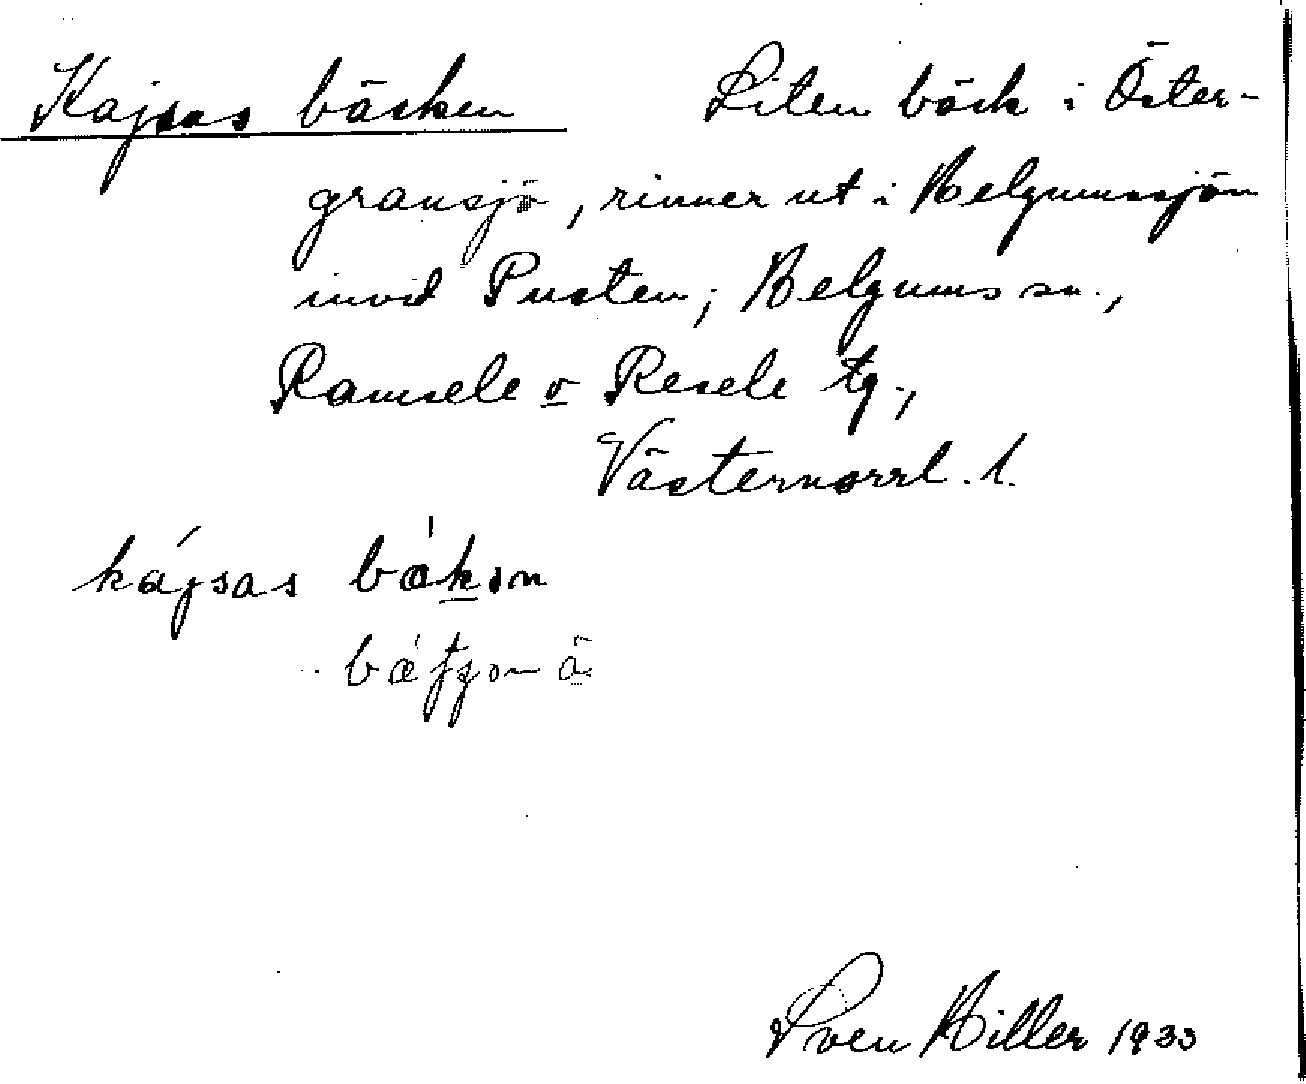 Kajsas bäcken Liten bäck i Öster-
gransjö, rinner ut i Helgumssjön
invid Pusten; Helgums sn.,
Ramsele o Resele tg.,
Västernorrl. l.
kájsas
Sven Hiller 1933